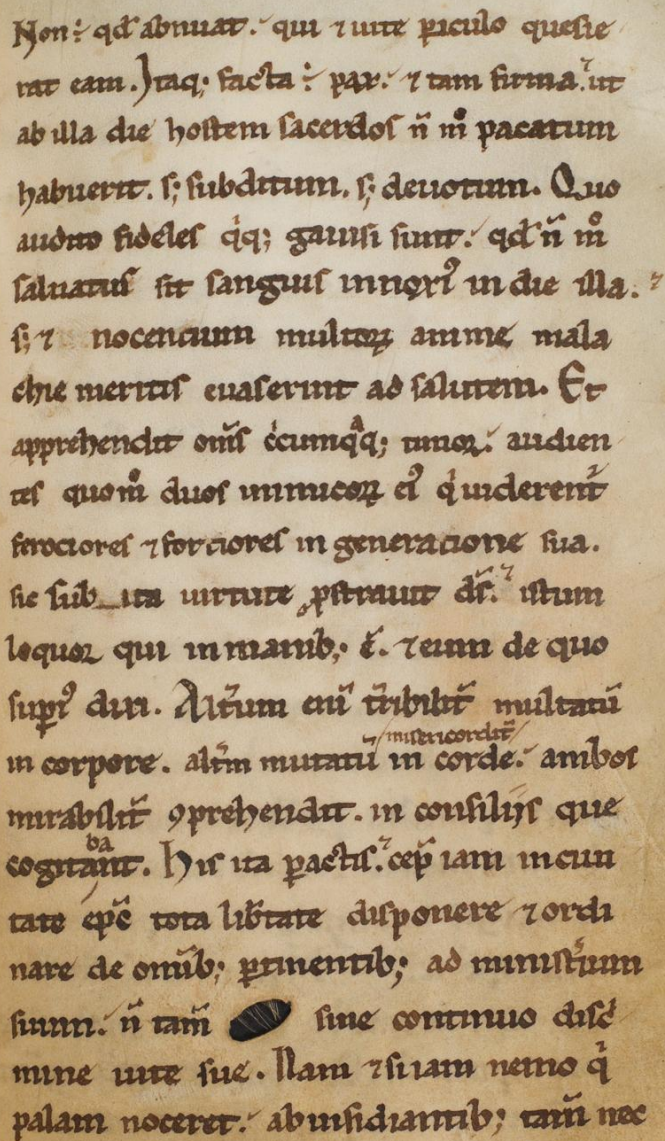 Non .̄ qd̄ abnuat. qui ⁊ uite ꝑiculo quesie
rat eam. Itaq; facta .̄ pax. ⁊ tam firma. ut
ab illa die hostem sacerdos n̄ m̊ pacatum
habuerit. s; subditum. s; deuotum. Quo
audito fideles q̇q; gauisi sunt. qd̄ n̄ m̊
saluatus sit sanguis innoxi᾽ in die illa.
s; ⁊ nocencium multoꝝ anime mala
chie meritis euaserint ad salutem. Et
apprehendit om̄s c̓cumq̇q; timor. audien
tes quom̊ duos inimicoꝝ ei᾽ q̇ uiderent᾽
ferociores ⁊ forciores in generacione sua.
sic sub_ita uirtute ꝓstrauit dn̄s. istum
loquor qui in manib; ē. ⁊ eum de quo
supi᾽ dixi. Alt̓um eni̅ t̓ribilit̓ multatū
in corpore. alt̓m mutatū misericordit̓ in corde. ambos
mirabilit̓ ꝯprehendit. in consiliis que
cogitabant. His ita ꝑactis. cep̄ iam in ciui
tate ep̄c tota lib̓tate disponere ⁊ ordi
nare de omīb; ꝑtinentib; ad minist̓ium
suum. n̄ tam̄ sine continuo disc̓
mine uite sue. Nam ⁊ si iam nemo q̇
palam noceret. ab insidiantib; tam̄ nec